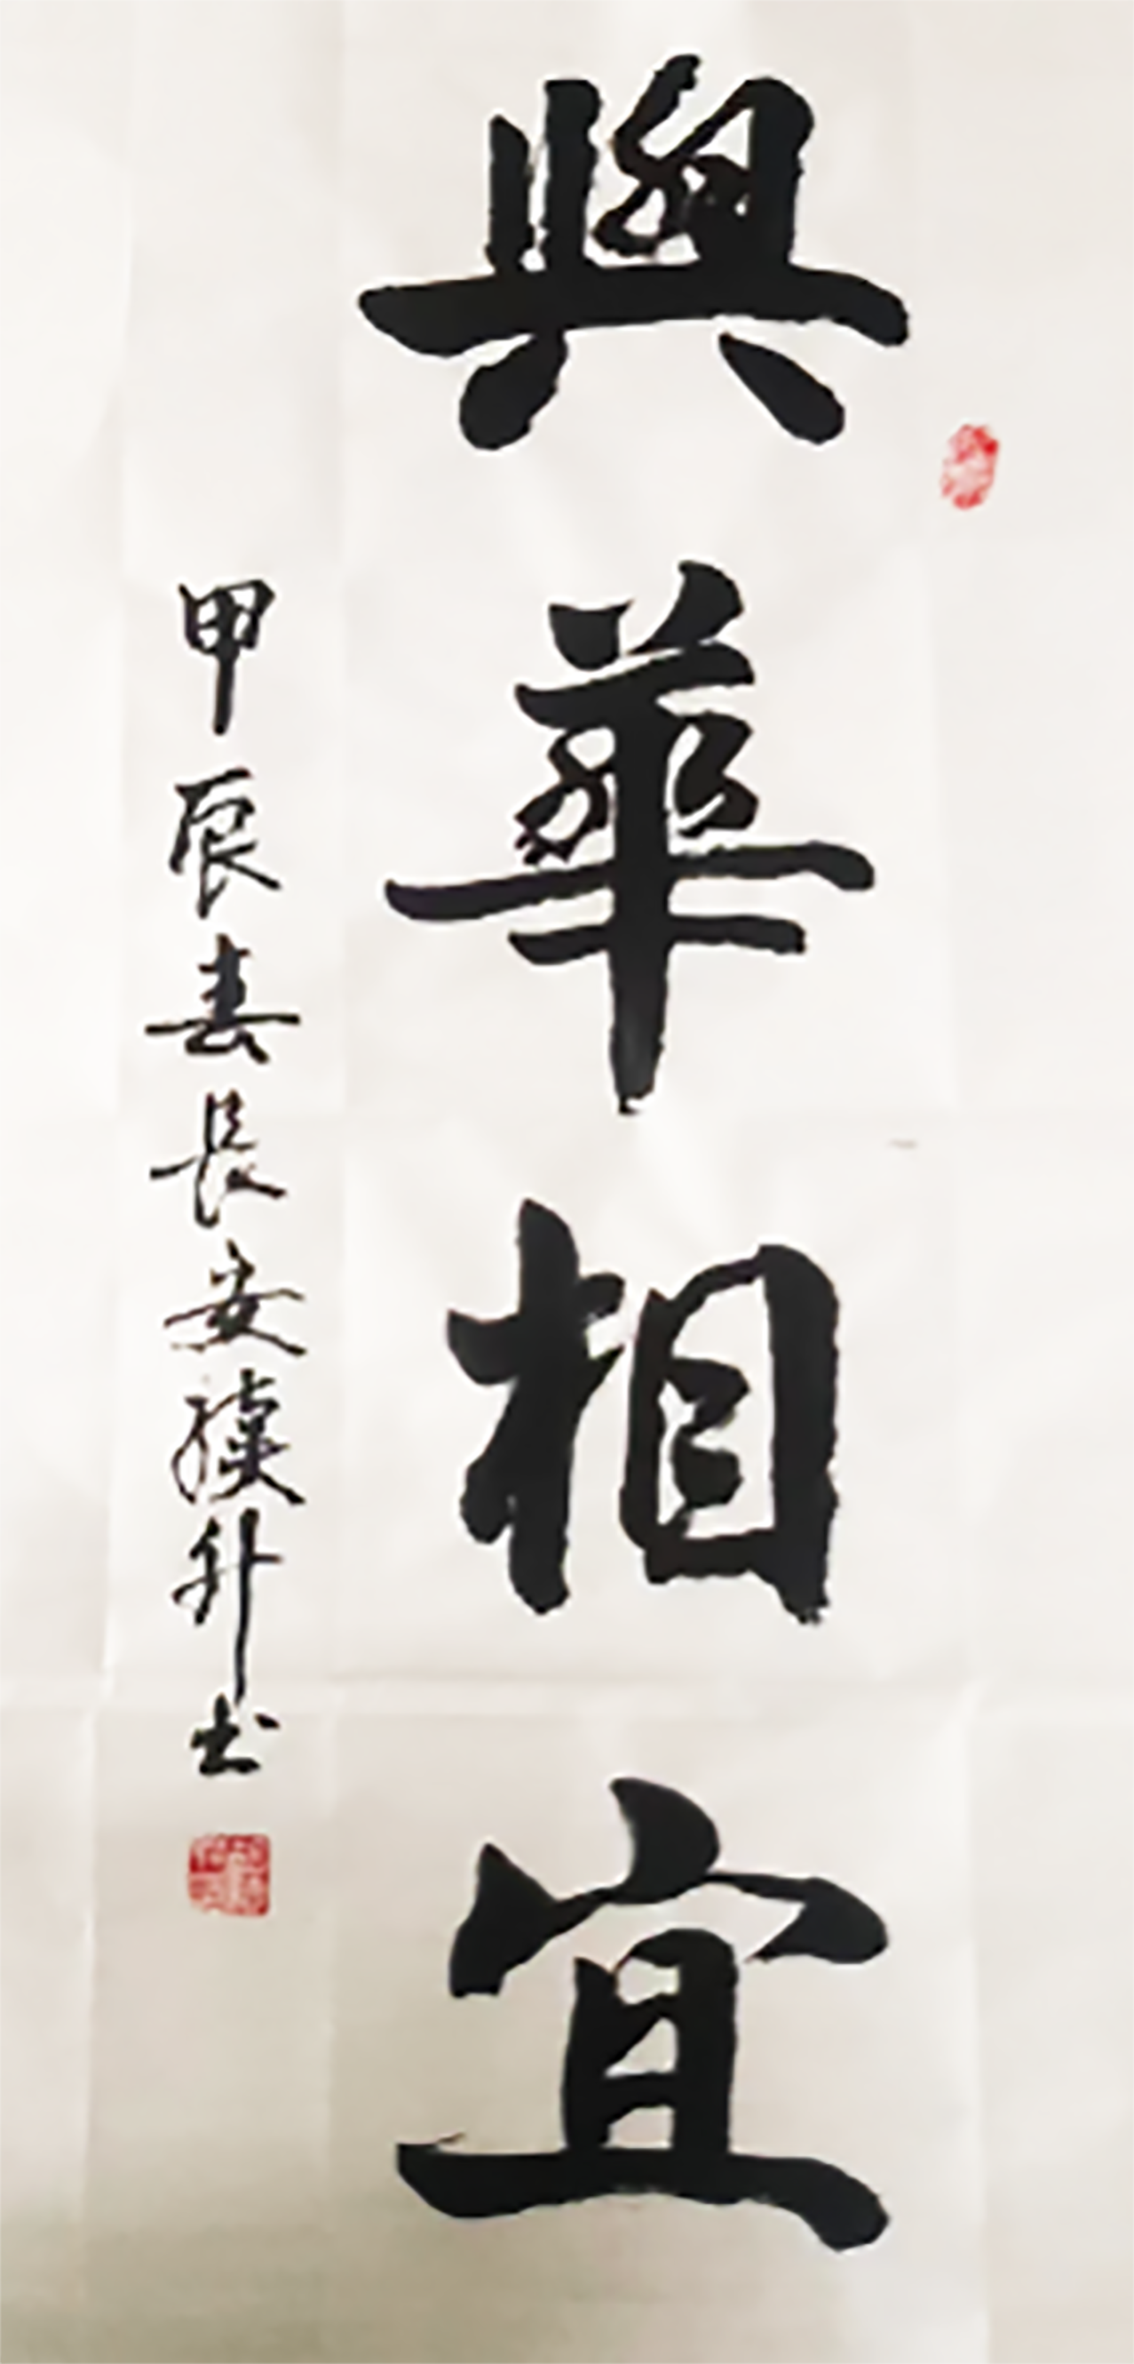 與華相宜
甲辰春長安續升书